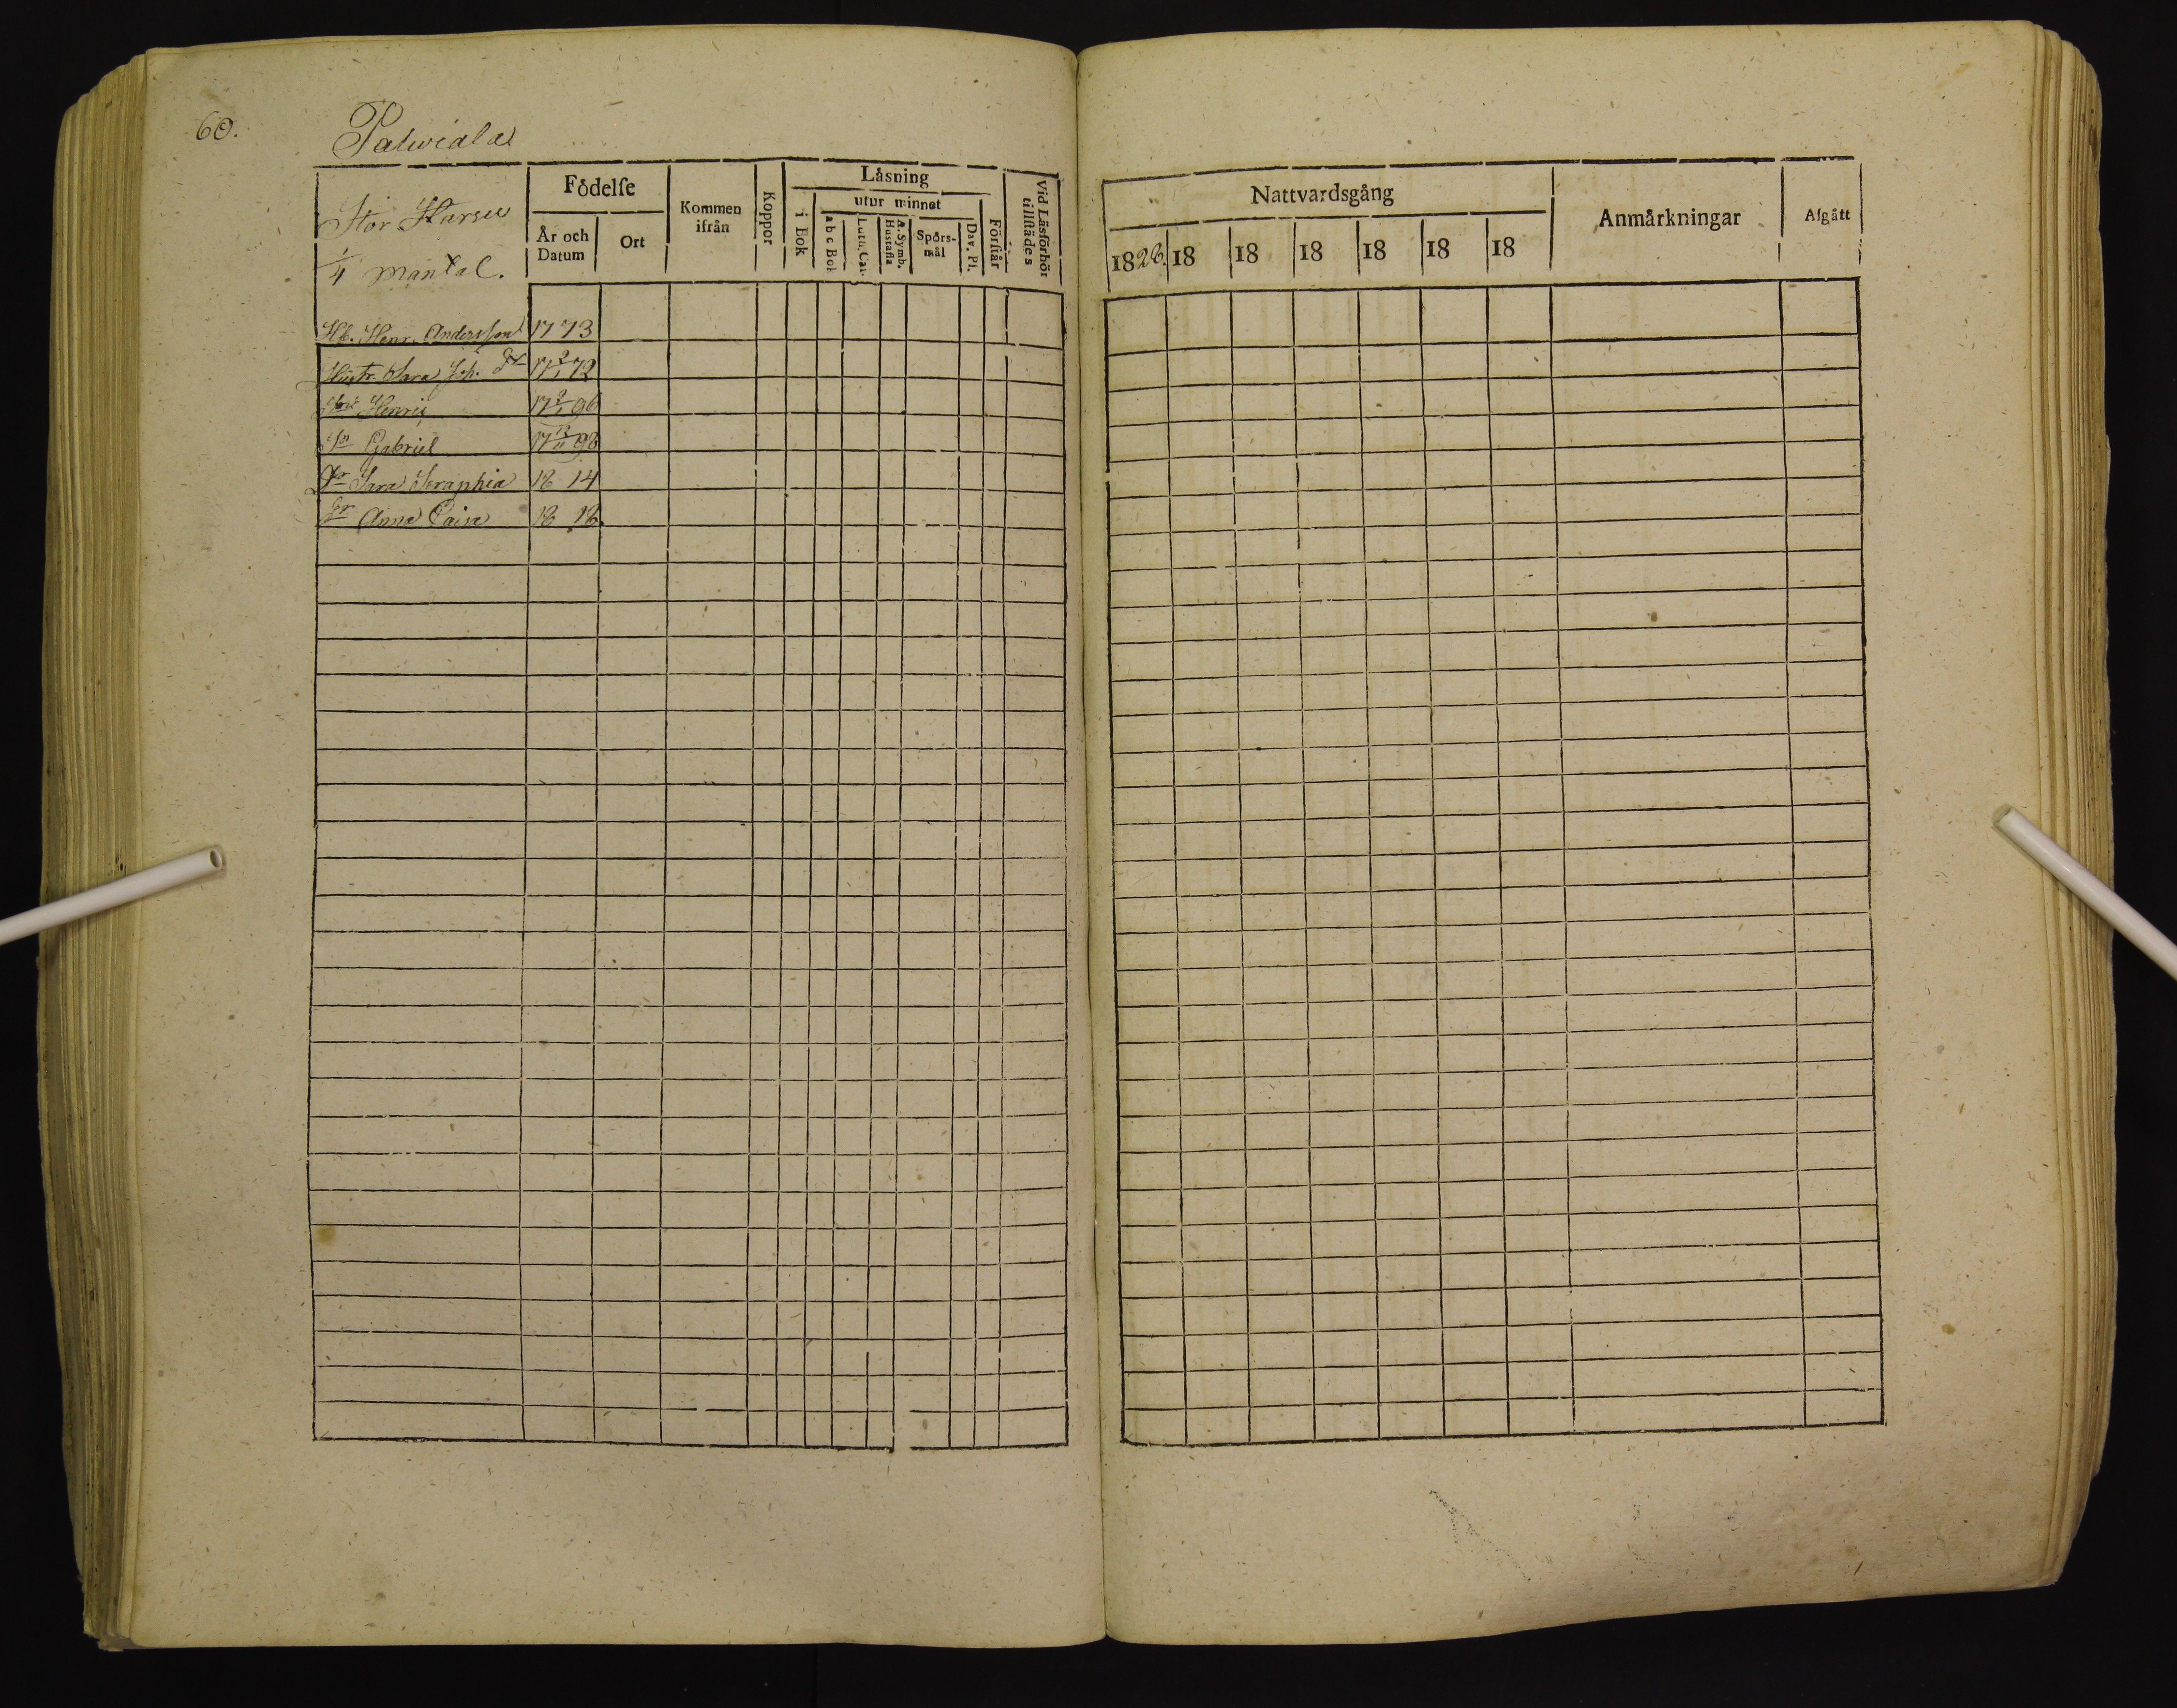 60.
Palwiala
Stor Harsu
1/4 mantal.
Födelse
År och Datum
Ort
Kommen ifrån
Koppor
Läsning
i Bok
utur minnet
a b c Bok
Luth. Cat.
A. Symb. Hustafla
Spörsmål
Dav. Ps.
Förstår
Vid Läsförhör tillstädes
Hb. Henr. Andersson 1773
Hustr. Sara Joh. Dr 17 2/1 72
Son Henric 17 9/1 96
Sn Gabriel 17 13/11 98
Dr Sara Seraphia 18 14
Dr Anna Caisa 18 18.
Nattvardsgång
1826. 18 18 18 18 18 18
Anmärkningar
Afgått